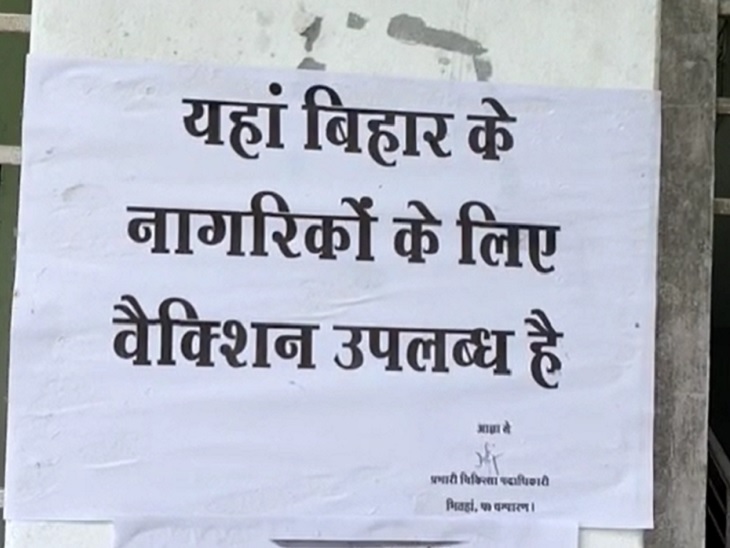 यहां बिहार के
नागरिकों के लिए
वैक्शिन उपलब्ध है
आज्ञा से
प्रभारी चिकित्सा पदाधिकारी
भितहां, प० चम्पारण।